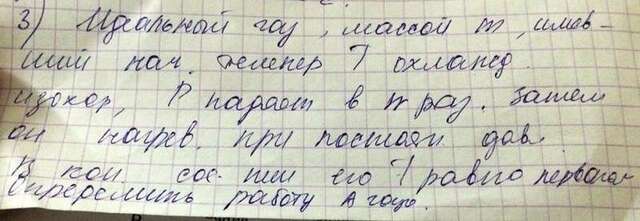 3) Идеальный газ, массой m, имев-
ший нач. темпер T охлажд.
изохор, P падает в n раз. Затем
он нагрев. при постоян дав.
В кон сос-нии его T равно первонач
Определить работу A газа.